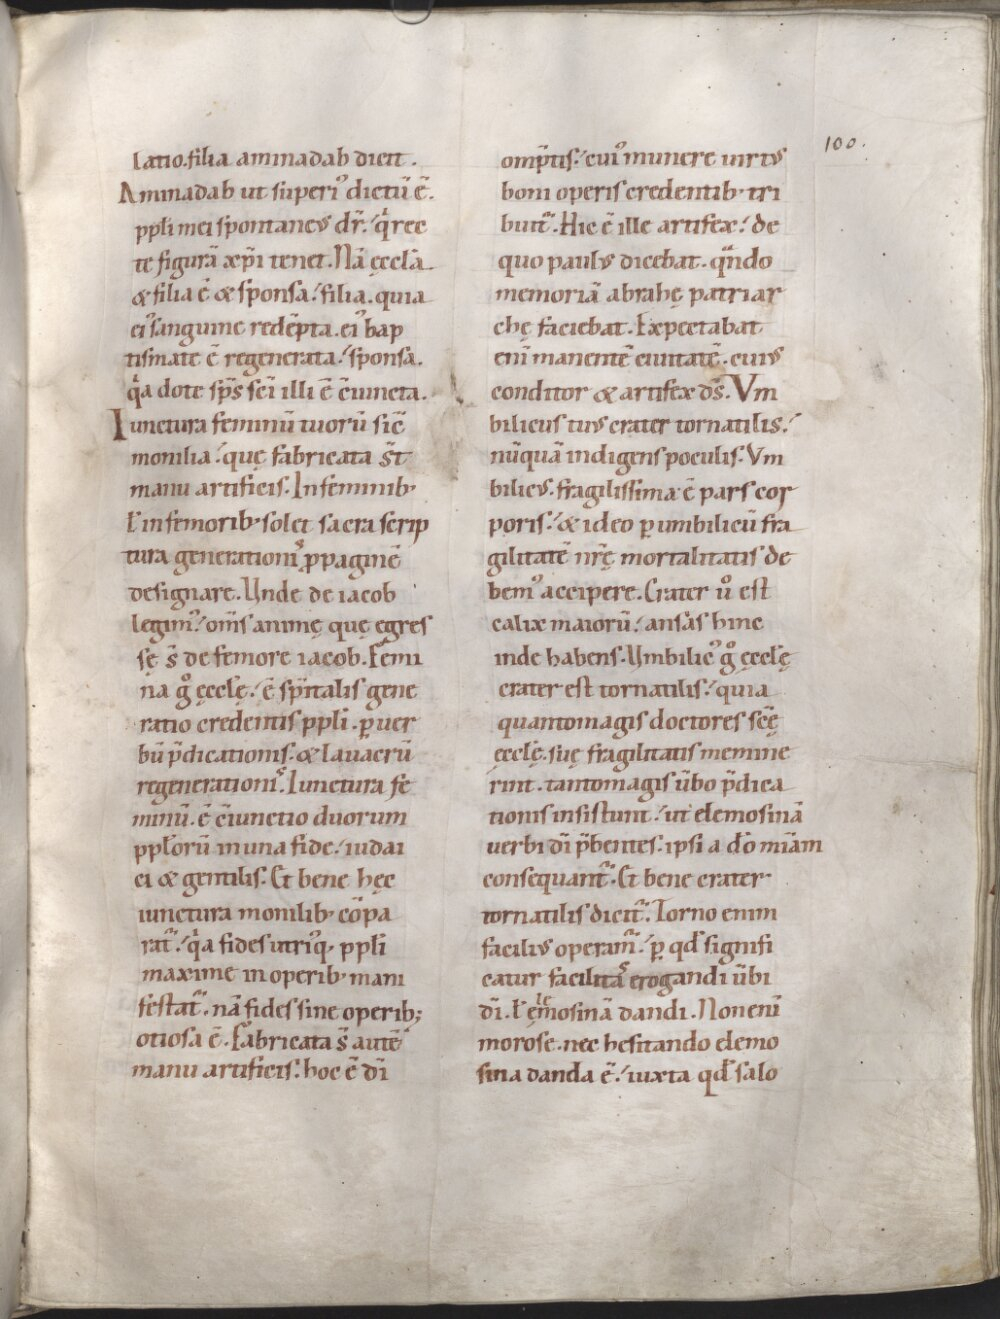 latio. filia aminadab dicit.
Aminadab ut superi᷒ dictū ē.
ppli mei spontaneus dr̄. qͥ rec
te figurā xp̄i tenet. Nā ęcclā
& filia ē & sponsa. filia. quia
ei᷒ sanguine redēpta. ei᷒ bap
tismate ē regenerata. sponsa.
qͥa dote sp̄s sc̄i illi ē c̄iuncta.
Iunctura feminū tuorū sic̄
monilia. quę fabricata s̄t
manu artificis. In feminib;
ł in femorib; solet sacra scrip
tura generationis ꝓpaginē
designare. Unde de iacob
legim᷒. om̄s animę que egres
sę s̄ de femore iacob. Femi
na gͦ ęcclę. ē sp̄italis gene
ratio credentis ppli. ꝑ uer
bū p̄dicationis. & lauacrū
regenerationis. Iunctura fe
minū. ē c̄iunctio duorum
pplorū in una fide. iudai
ci & gentilis. Et bene hęc
iunctura monilib; cōpa
rat᷑. qͥa fides utriꝰq; ppli
maxime in operib; mani
festat᷑. nā fides sine operib;
otiosa ē. Fabricata s̄ autē
manu artificis. hoc ē dī
100.
omp̄tis. cui᷒ munere uirtus
boni operis credentib; tri
buit᷑. Hic ē ille artifex. de
quo paulus dicebat. qn̄do
memoriā abrahę patriar
chę faciebat. Expectabat
enī manentē ciuitatē. cuius
conditor & artifex ds̄. Vm
bilicus tuus crater tornatilis.
nūquā indigens poculis. Vm
bilicus. fragilissima ē pars cor
poris. & ideo ꝑ umbilicū fra
gilitatē nr̄ę mortalitatis de
bem᷒ accipere. Crater ūͦ est
calix maiorū. ansas hinc
inde habens. Umbilic᷒ gͦ ęcclę
crater est tornatilis. quia
quantomagis doctores sc̄ę
ęcclę. suę fragilitatis memine
rint. tantomagis ūbo p̄dica
tionis insistunt. ut elemosinā
uerbi dī p̄bentes. ipsi a do mīam
consequant᷑. Et bene crater
tornatilis dicit᷑. Torno enim
facilius operam᷑. ꝑ qd̄ signifi
catur facilitas erogandi ūbi
dī. ł elemosinā dandi. Non enī
morose. nec hesitando elemo
sina danda ē. iuxta qd̄ salo